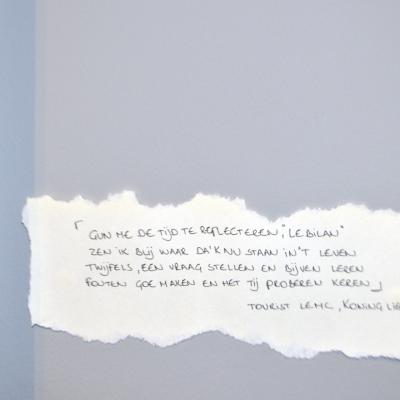 「 GUN ME DE TIJD TE REFLECTEREN, "LE BILAN"
ZEN IK BLIJ WAAR DA'K NU STAAN IN 'T LEVEN
TWIJFELS, EEN VRAAG STELLEN EN BIJVEN LEREN
FOUTEN GOE MAKEN EN HET TIJ PROBEREN KEREN」
TOURIST LEMC, KONING LIE